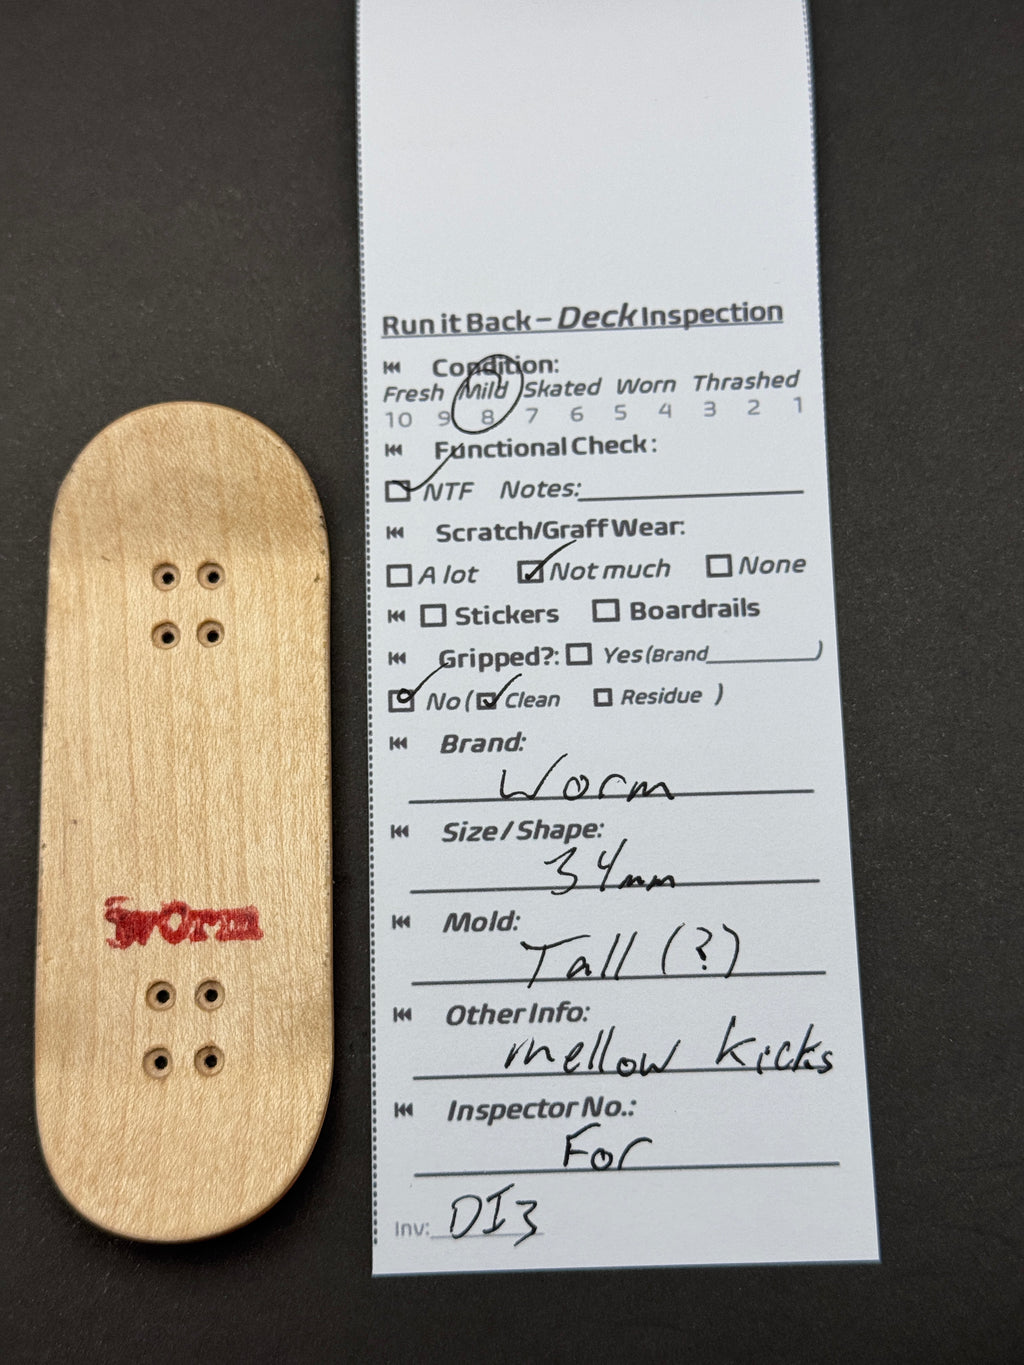 Run it Back – Deck Inspection
Condition:
Fresh Mild Skated Worn Thrashed
10 9 8 7 6 5 4 3 2 1
Functional Check:
NTF Notes:
Scratch/Graff Wear:
A lot Not much None
Stickers Boardrails
Gripped?: Yes (Brand )
No ( Clean Residue )
Brand:
Worm
Size / Shape:
34mm
Mold:
Tall (?)
Other Info:
mellow kicks
Inspector No.:
For
Inv: DI3
worm